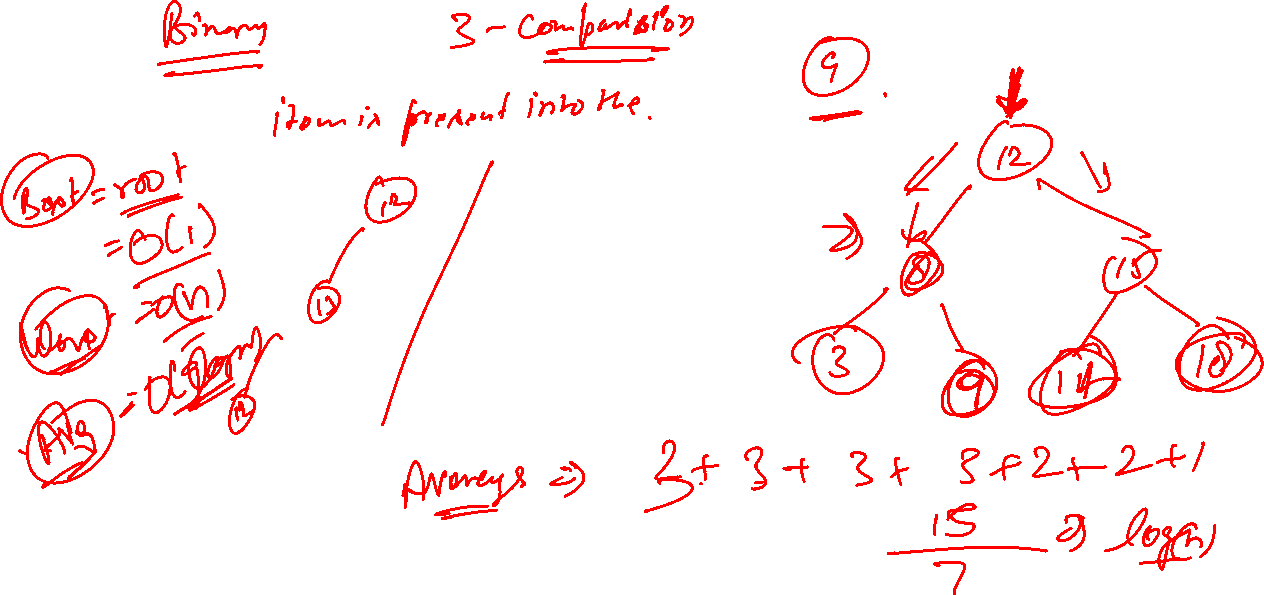 Binary
3 - Comparision
item is present into the.
9
Best = root
= O(1)
Worst = O(n)
Avg = O(logn)
12
8 15
3 9 14 18
12
Average ⇒ 3 + 3 + 3 + 3 + 2 + 2 + 1
15
7
⇒ log(n)